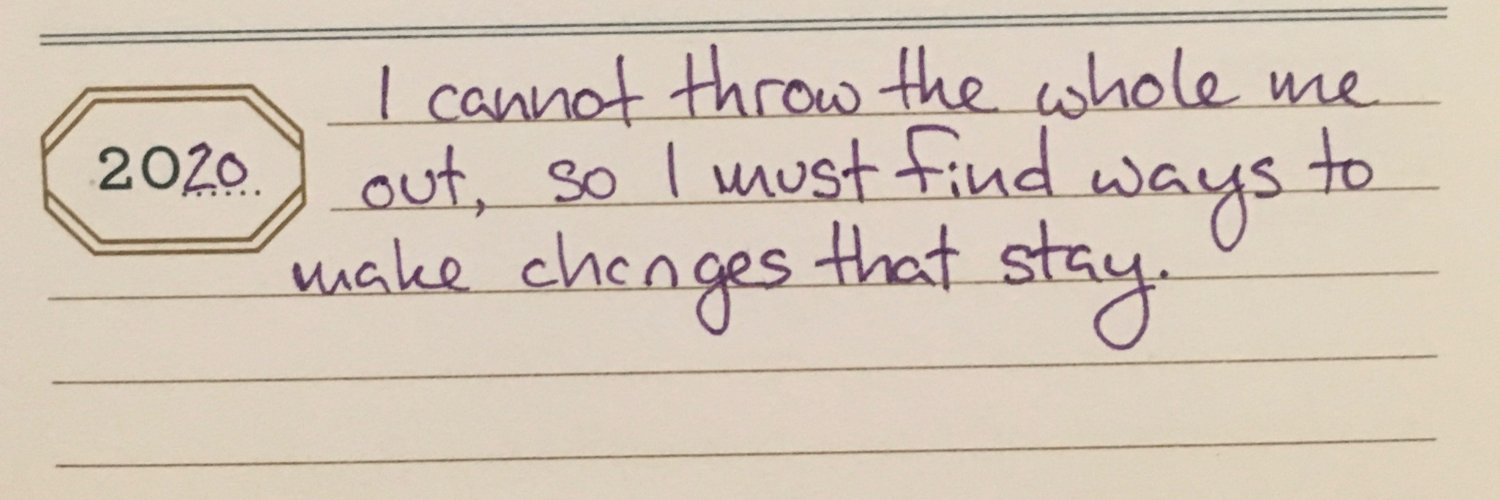 2020
I cannot throw the whole me
out, so I must find ways to
make changes that stay.